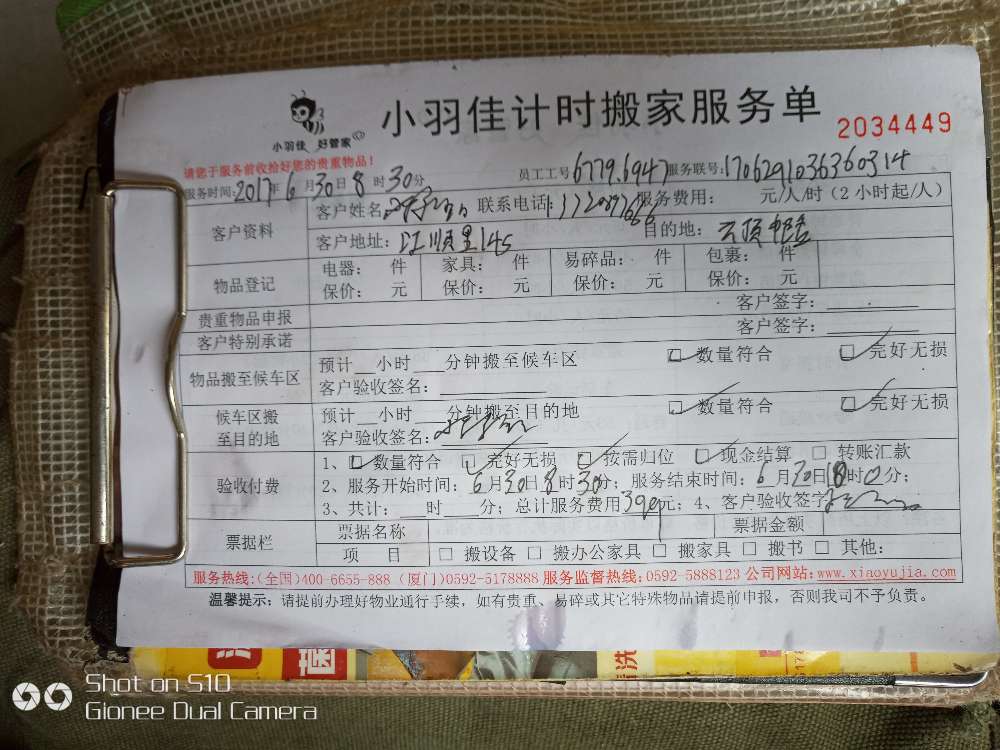 小羽佳 好管家
小羽佳计时搬家服务单
2034449
请您于服务前收拾好您的贵重物品！
服务时间:2017年6月30日8时30分 员工工号6779.6947 服务联号:1706291036360314
客户资料 客户姓名: 联系电话: 服务费用: 元/人/时（2小时起/人）
客户地址: 目的地:
物品登记 电器: 件 家具: 件 易碎品: 件 包裹: 件
保价: 元 保价: 元 保价: 元 保价: 元
贵重物品申报 客户签字:
客户特别承诺 客户签字:
物品搬至候车区 预计__小时___分钟搬至候车区 □ 数量符合 □ 完好无损
客户验收签名:
候车区搬至目的地 预计__小时___分钟搬至目的地 □ 数量符合 □ 完好无损
客户验收签名:
验收付费 1、□ 数量符合 □ 完好无损 □ 按需归位 □ 现金结算 □ 转账汇款
2、服务开始时间: 6月30日8时30分; 服务结束时间: 6月30日18时0分;
3、共计: __时___分; 总计服务费用390元; 4、客户验收签字
票据栏 票据名称 票据金额
项 目 □ 搬设备 □ 搬办公家具 □ 搬家具 □ 搬书 □ 其他:
服务热线:(全国)400-6655-888（厦门)0592-5178888 服务监督热线:0592-5888123 公司网站:www.xiaoyujia.com
温馨提示: 请提前办理好物业通行手续，如有贵重、易碎或其它特殊物品请提前申报，否则我司不予负责。
菌
洗
Shot on S10
Gionee Dual Camera